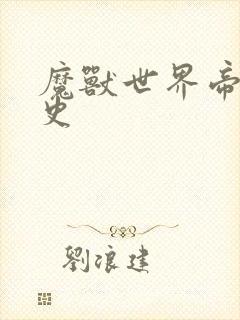 魔獸世界帝
史
劉浪建